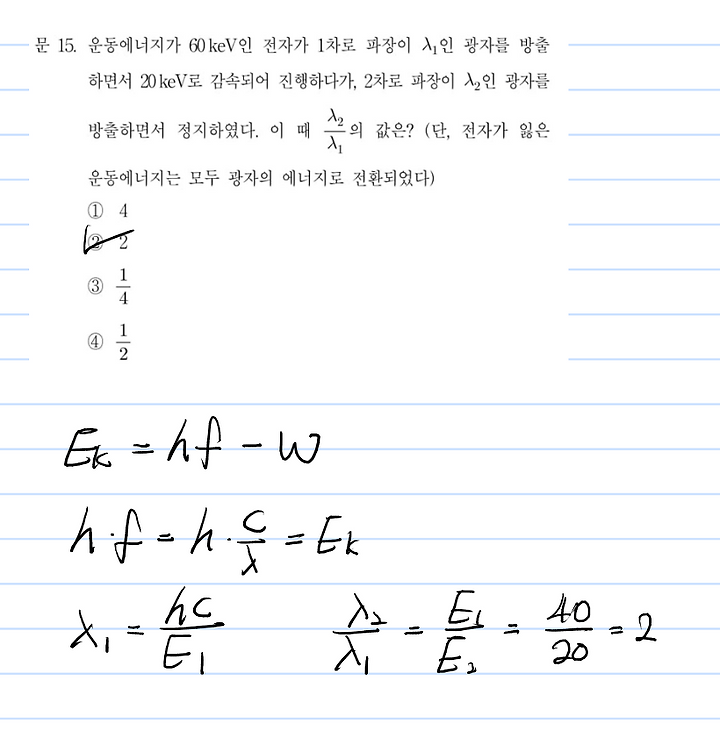 문 15. 운동에너지가 60 keV인 전자가 1차로 파장이 λ₁인 광자를 방출
하면서 20 keV로 감속되어 진행하다가, 2차로 파장이 λ₂인 광자를
방출하면서 정지하였다. 이 때 λ₂/λ₁의 값은? (단, 전자가 잃은
운동에너지는 모두 광자의 에너지로 전환되었다)
① 4
② 2
③ 1/4
④ 1/2
E_k = hf - W
h·f = h·c/λ = E_k
λ₁ = hc/E₁ λ₂/λ₁ = E₁/E₂ = 40/20 = 2